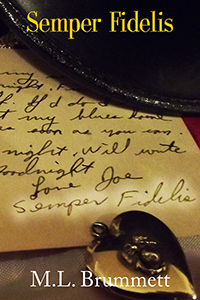 Semper Fidelis
my
night,
if I'd do
t my blues home
soon as you can.
night, Will write
oodnight
Love Joe
Semper Fidelis
M.L. Brummett